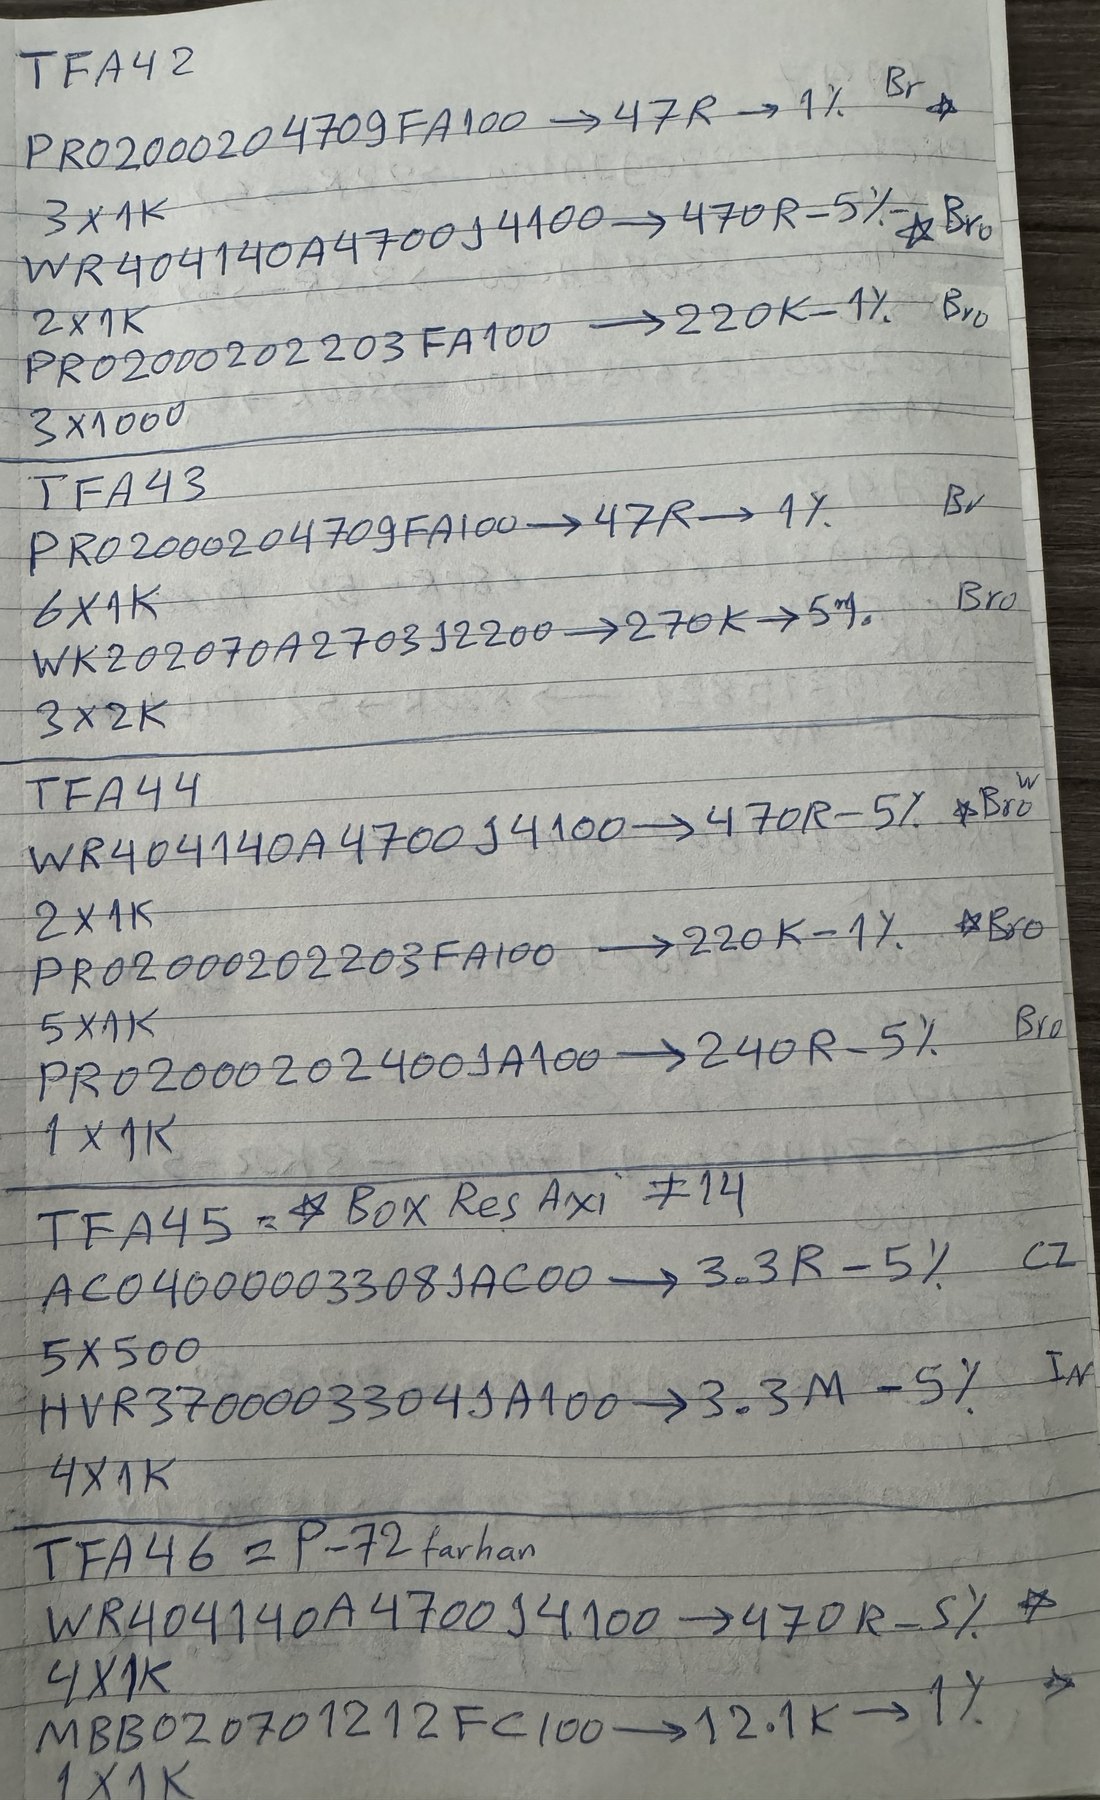 TFA42
PR02000204709FA100 → 47R → 1% Br ☆
3x1K
WR404140A4700J4100 → 470R-5%- ☆ Bro
2x1K
PR02000202203FA100 → 220K-1% Bro
3x1000
TFA43
PR02000204709FA100 → 47R → 1% Br
6x1K
WK202070A2703J2200 → 270K → 5% Bro
3x2K
TFA44
WR404140A4700J4100 → 470R-5% ☆ Brow
2x1K
PR02000202203FA100 → 220K-1% ☆ Bro
5x1K
PR02000202400JA100 → 240R-5% Bro
1x1K
TFA45 = ☆ Box Res Axi #14
AC04000003308JAC00 → 3.3R-5% CZ
5x500
HVR3700003304JA100 → 3.3M-5% IN
4x1K
TFA46 = P-72 farhan
WR404140A4700J4100 → 470R-5% ☆
4x1K
MBB020701212FC100 → 12.1K → 1% ☆
1x1K